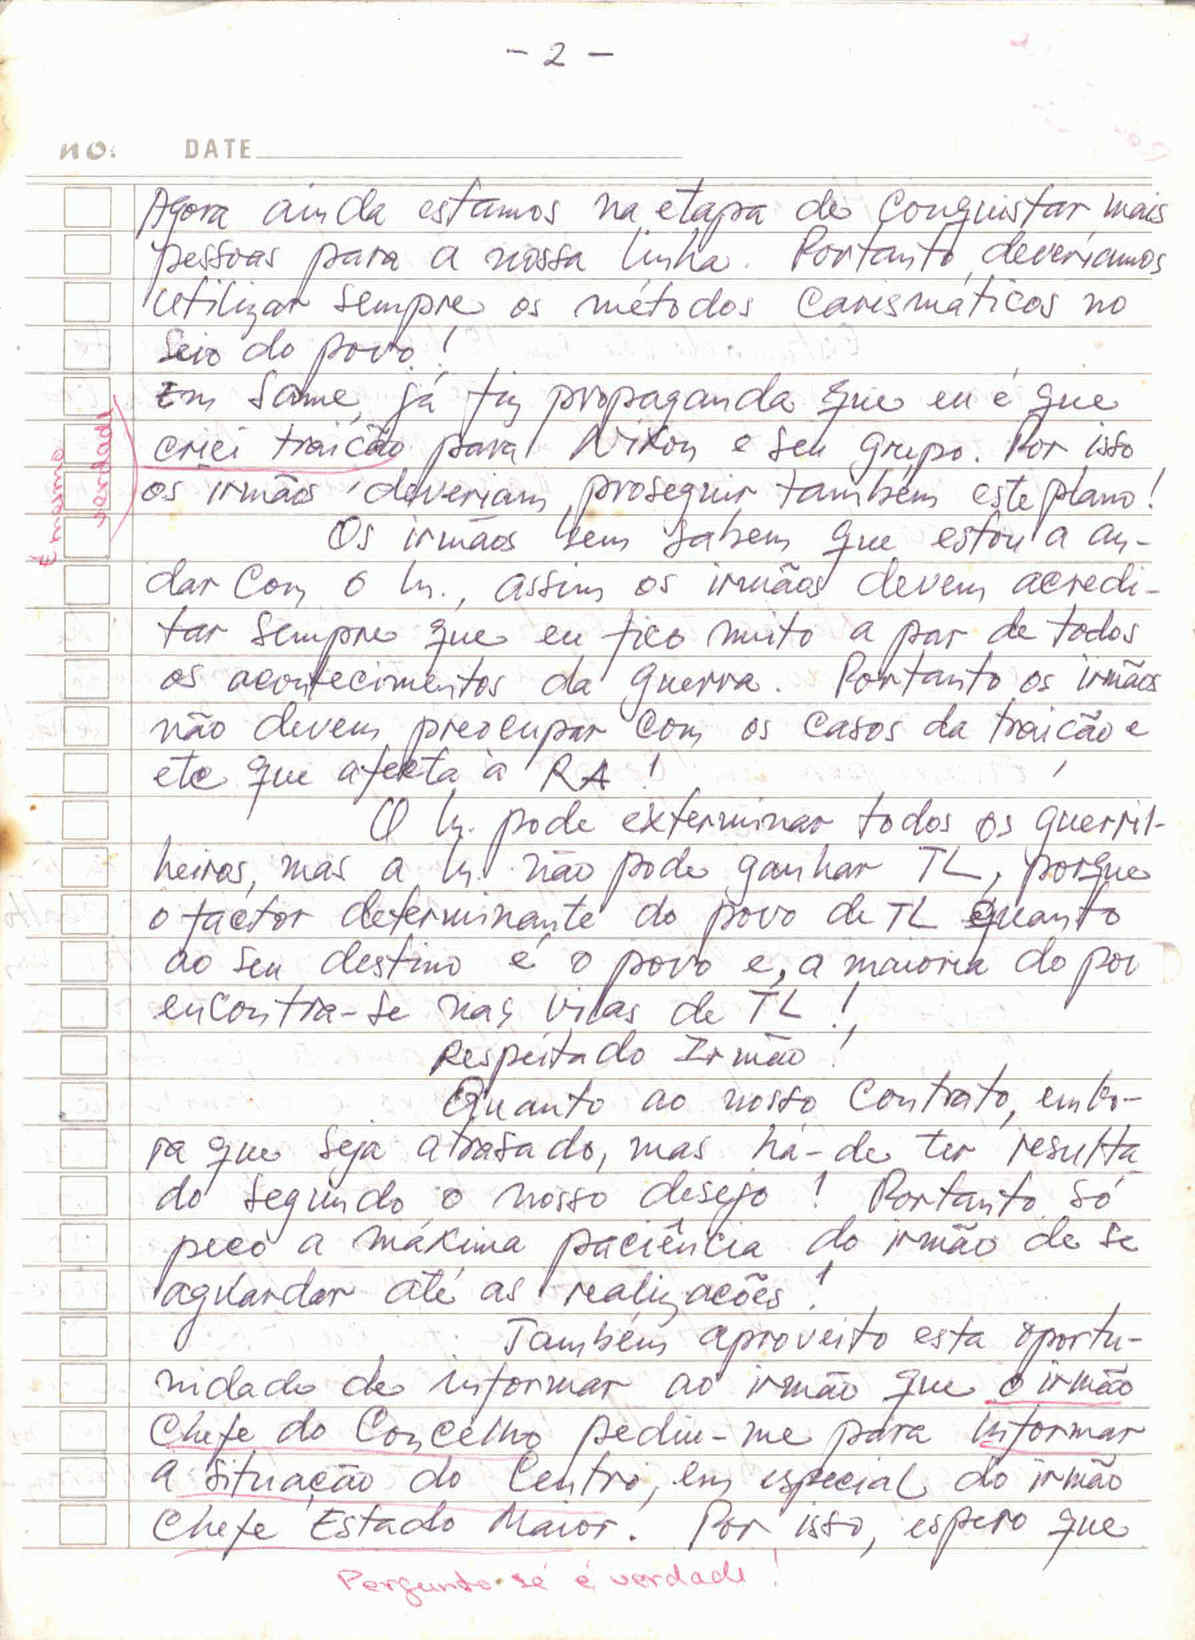 - 2 -
NO. DATE
Agora ainda estamos na etapa de conquistar mais
pessoas para a nossa linha. Portanto, deveriamos
utilizar sempre os métodos carismáticos no
seio do povo!
Em Same, já fiz propaganda que eu é que
criei traição para Nixon e seu grupo. Por isso
os irmãos deveriam proseguir também este plano!
É mesmo
verdade
Os irmãos bem sabem que estou a an-
dar com o In., assim os irmãos devem acredi-
tar sempre que eu fico muito a par de todos
os acontecimentos da guerra. Portanto os irmãos
não devem preocupar com os casos da traição e
etc que afecta à RA!
O In. pode exterminar todos os guerril-
heiros, mas a In. não pode ganhar TL, porque
o factor determinante do povo de TL quanto
ao seu destino é o povo e, a maioria do pov
encontra-se nas vilas de TL!
Respeitado Irmão!
Quanto ao nosso contrato, embo-
ra que seja atrasado, mas há-de ter resulta
do segundo o nosso desejo! Portanto só
peço a máxima paciência do irmão de se
aguardar até as realizações!
Também aproveito esta oportu-
nidade de informar ao irmão que o irmão
Chefe do Concelho pediu-me para informar
a situação do Centro, em especial do irmão
Chefe Estado Maior. Por isso, espero que
Pergunto se é verdade!